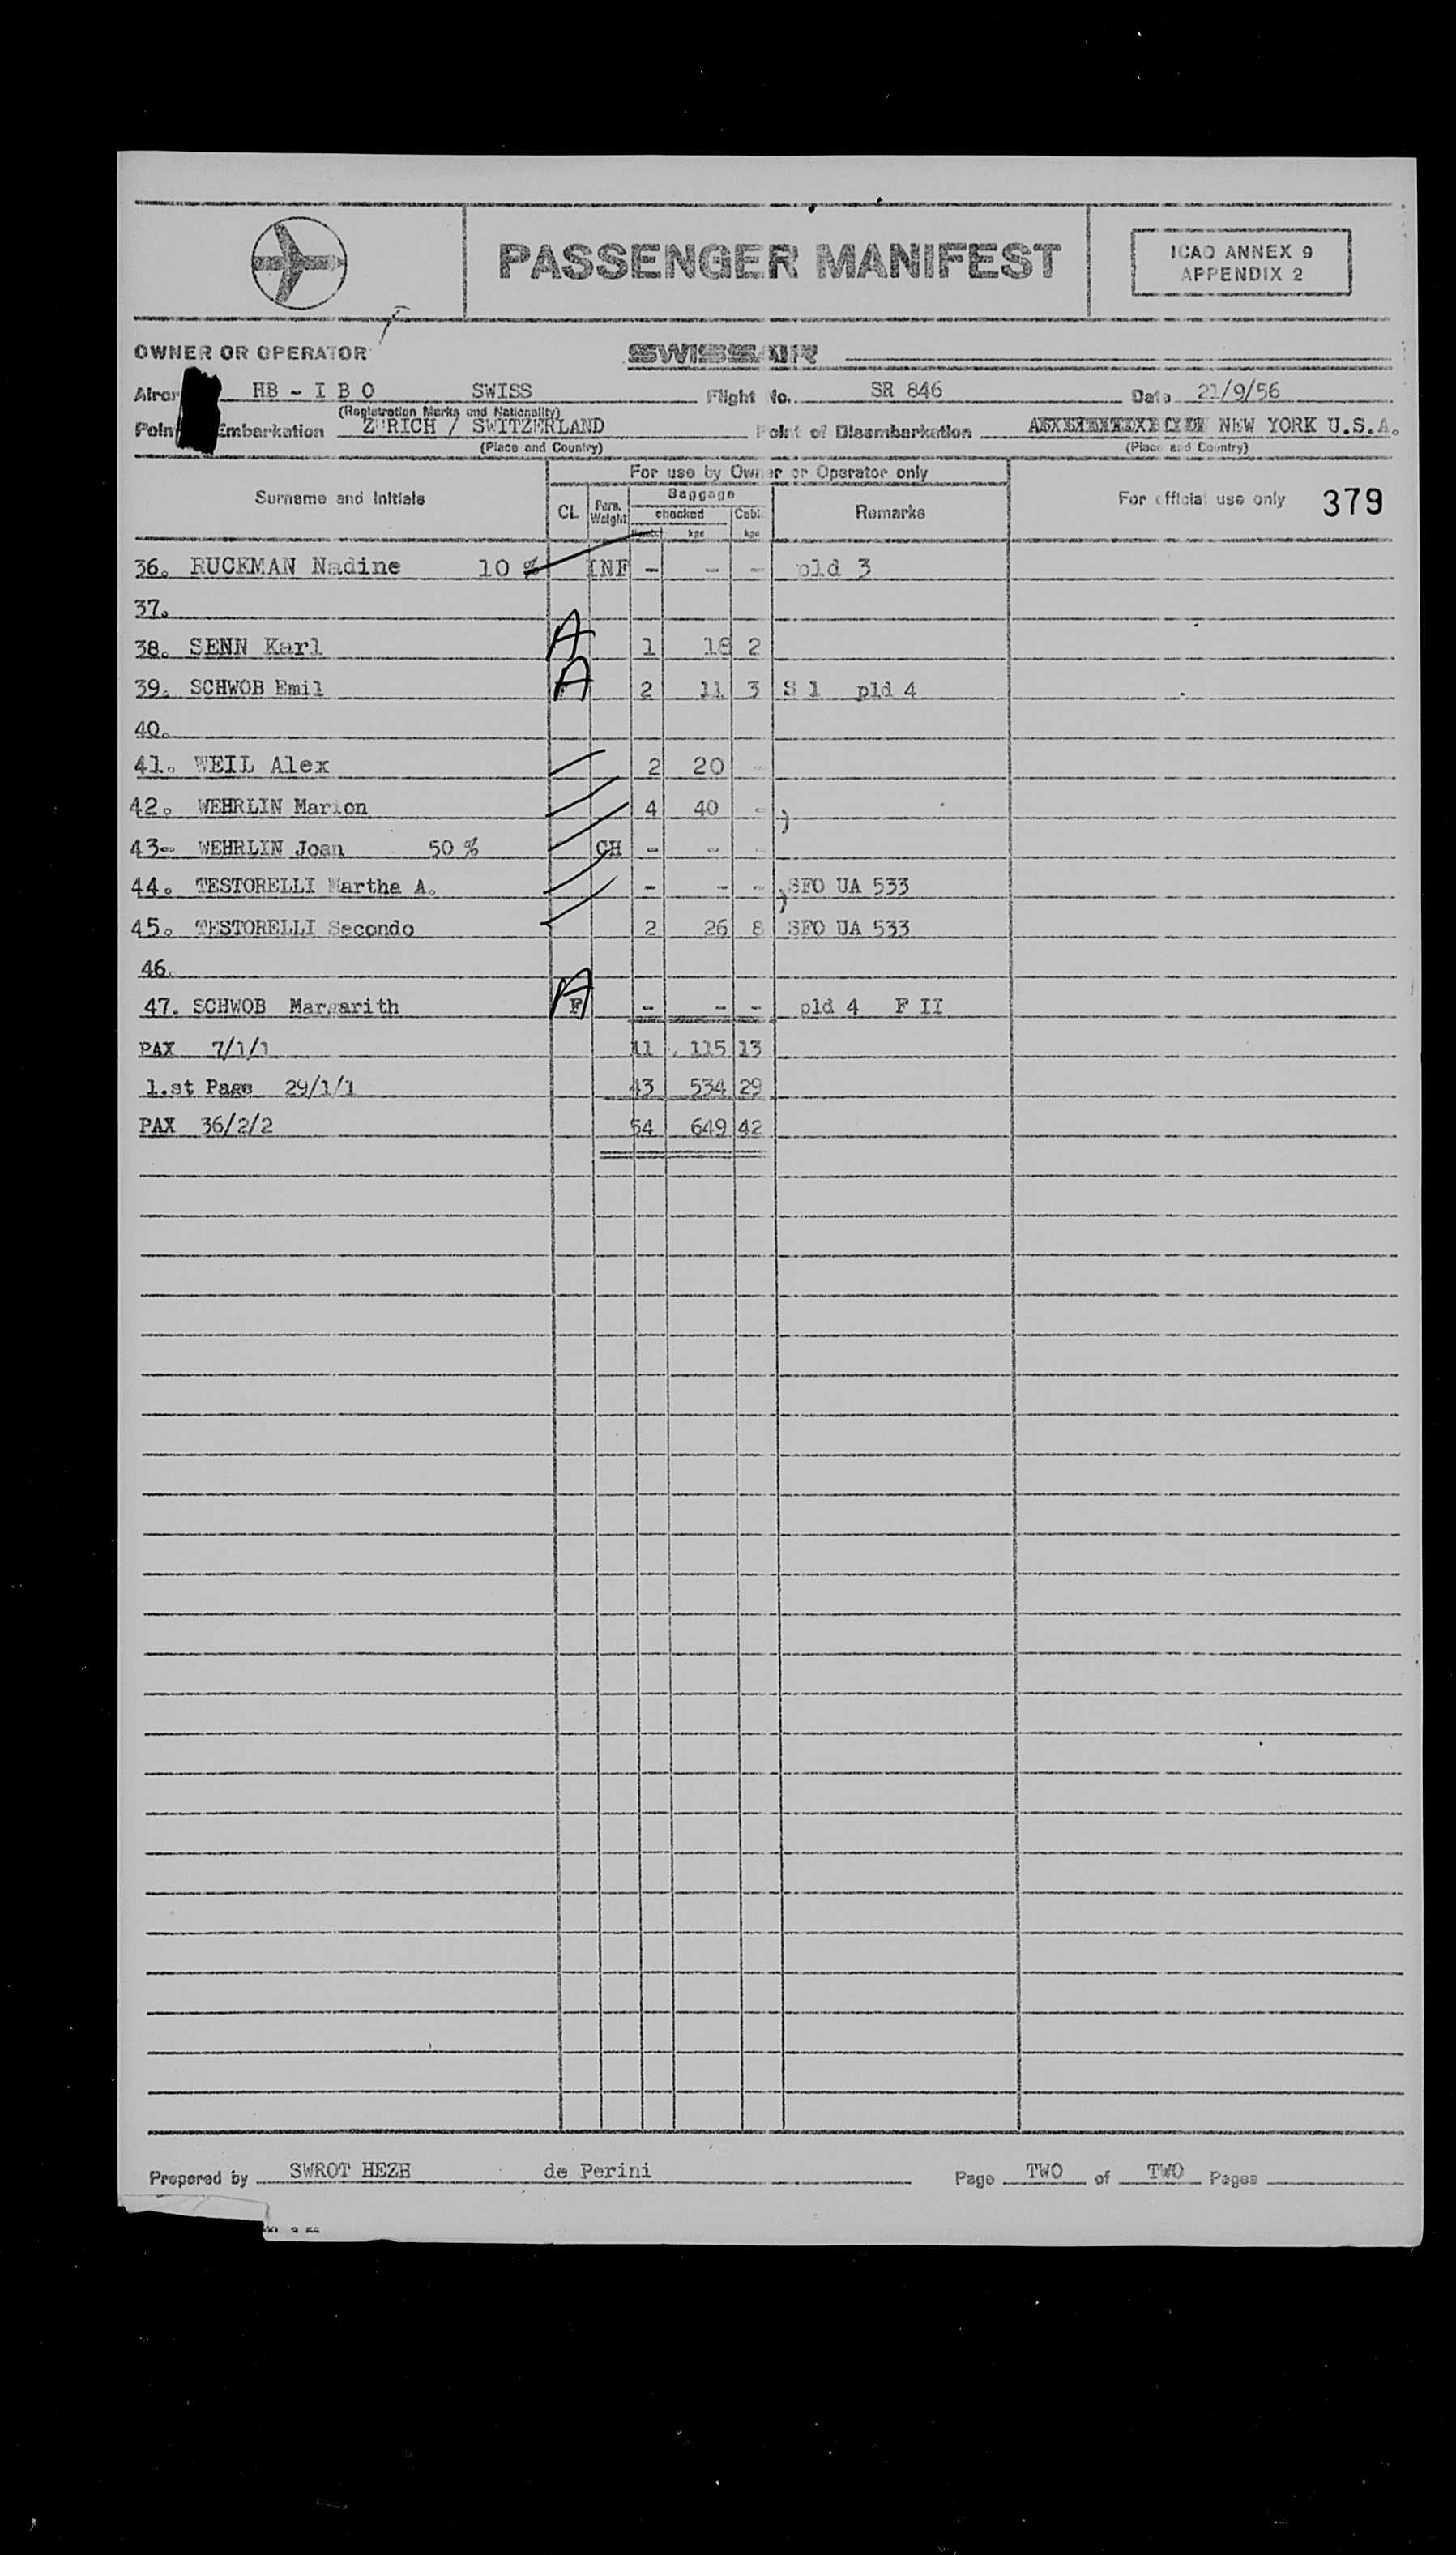 PASSENGER MANIFEST
ICAO ANNEX 9
APPENDIX 2
OWNER OR OPERATOR SWISSAIR
HB - I B O SWISS Flight No. SR 846 Date 21/9/56
(Registration Marks and Nationality)
Embarkation ZURICH / SWITZERLAND Point of Disembarkation NEW YORK U.S.A.
(Place and Country) (Place and Country)
For use by Owner or Operator only
Surname and Initials CL Pers. Weight Baggage Remarks For official use only 379
checked Cabin
Numb. kgs kgs
36. RUCKMAN Nadine 10 % INF - - - pld 3
37.
38. SENN Karl A 1 18 2
39. SCHWOB Emil A 2 11 3 S 1 pld 4
40.
41. WEIL Alex 2 20 -
42. WEHRLIN Marion 4 40 - )
43- WEHRLIN Joan 50 % CH - - -
44. TESTORELLI Martha A. - - - )SFO UA 533
45. TESTORELLI Secondo 2 26 8 ) SFO UA 533
46.
47. SCHWOB Margarith A F - - - pld 4 F II
PAX 7/1/1 11 115 13
1.st Page 29/1/1 43 534 29
PAX 36/2/2 54 649 42
Prepared by SWROT HEZH de Perini Page TWO of TWO Pages